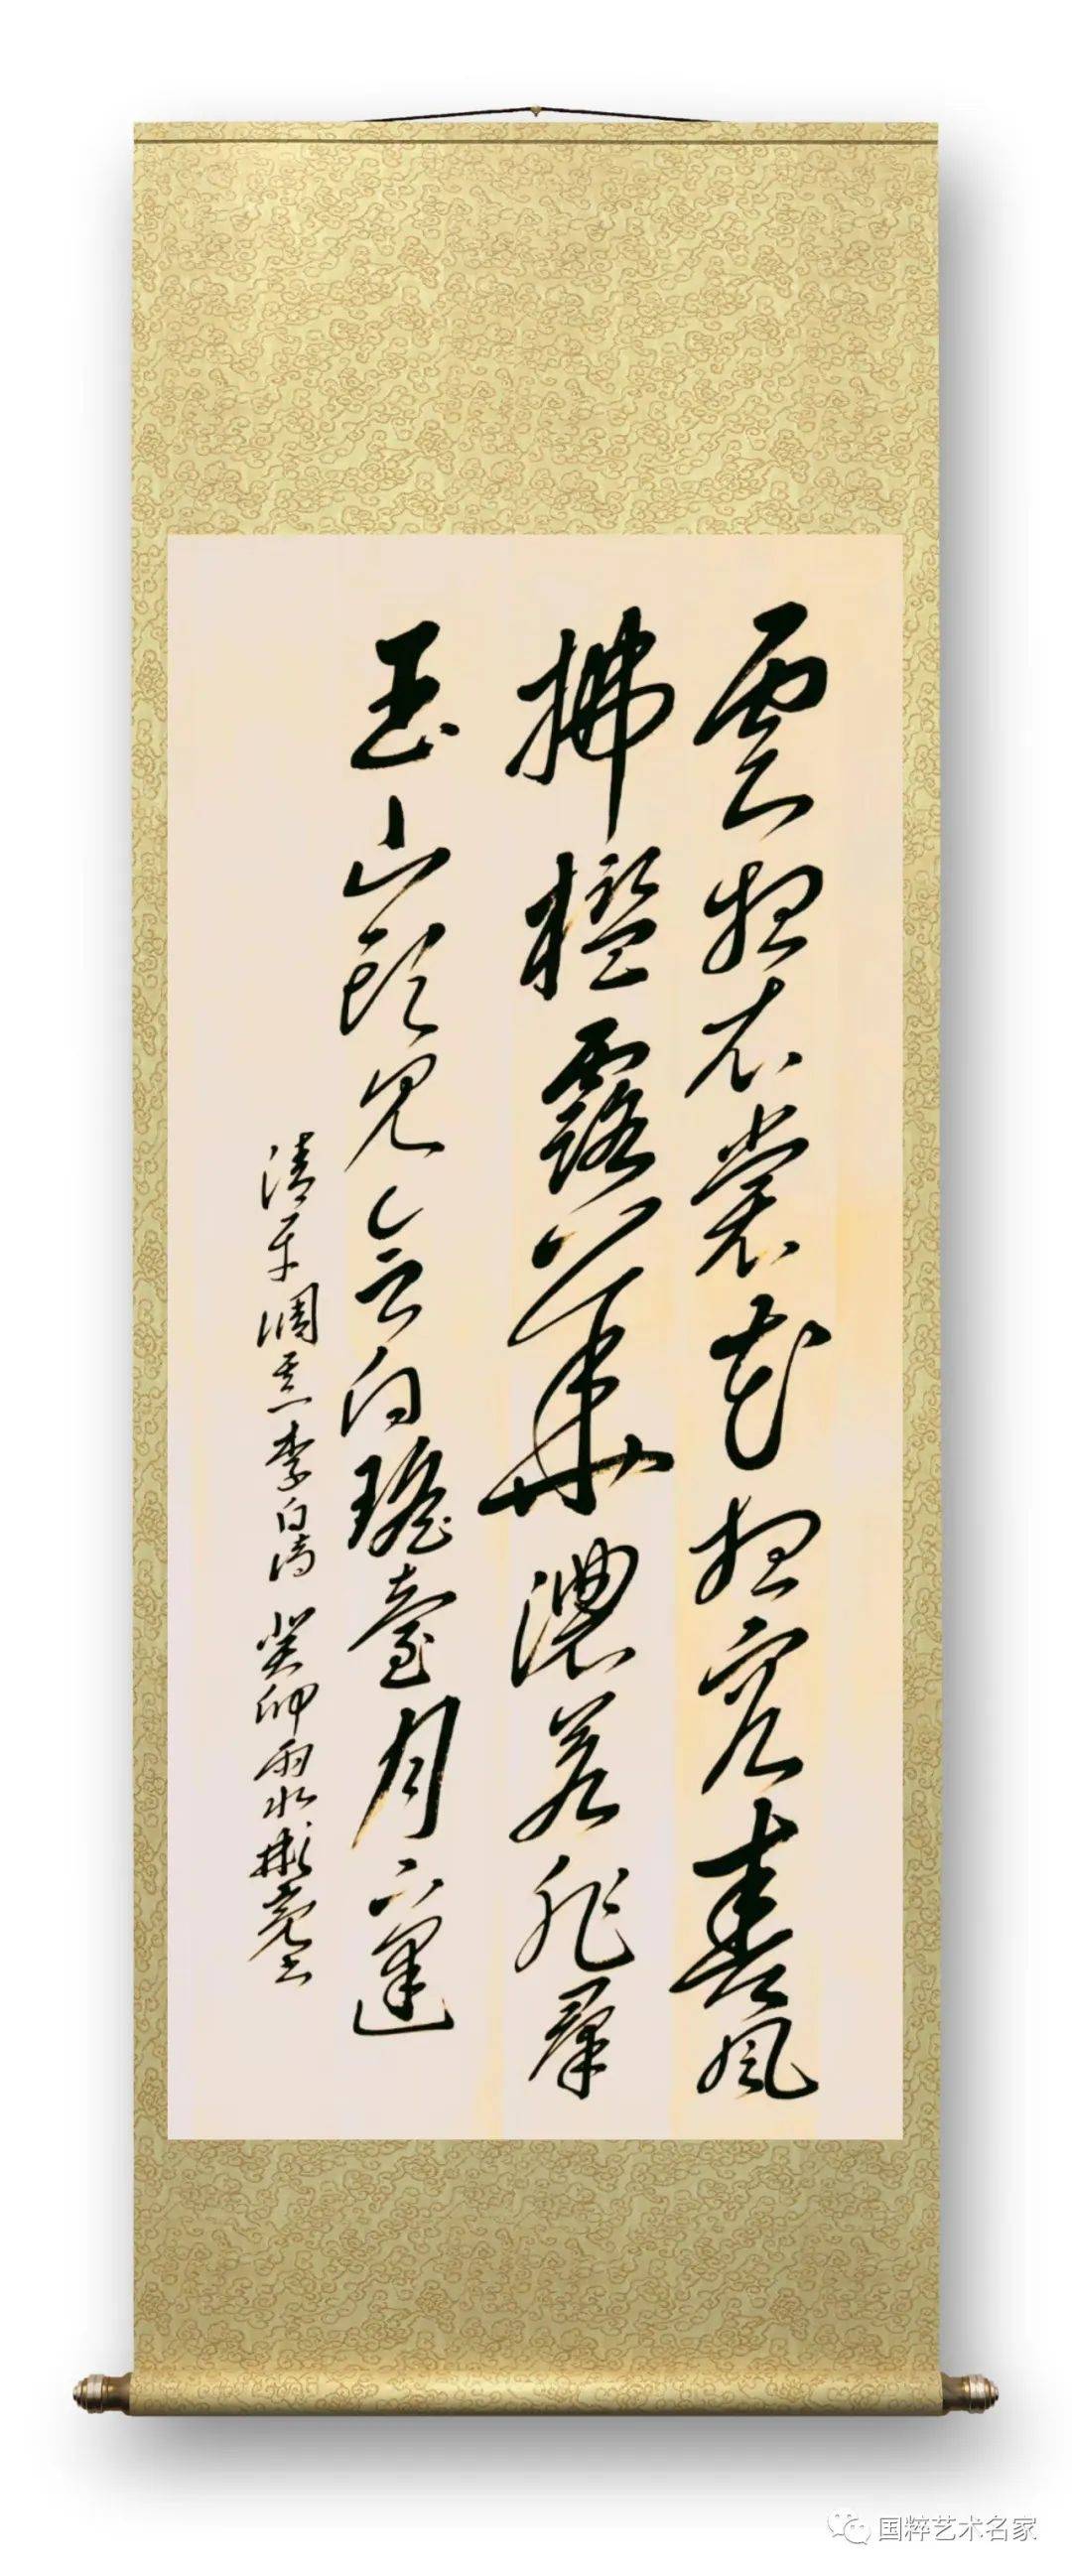 雲想衣裳花想容春風
拂檻露華濃若非羣
玉山頭見會向瑤臺月下逢
清平調其一李白詩 癸卯雨水彬書
国粹艺术名家